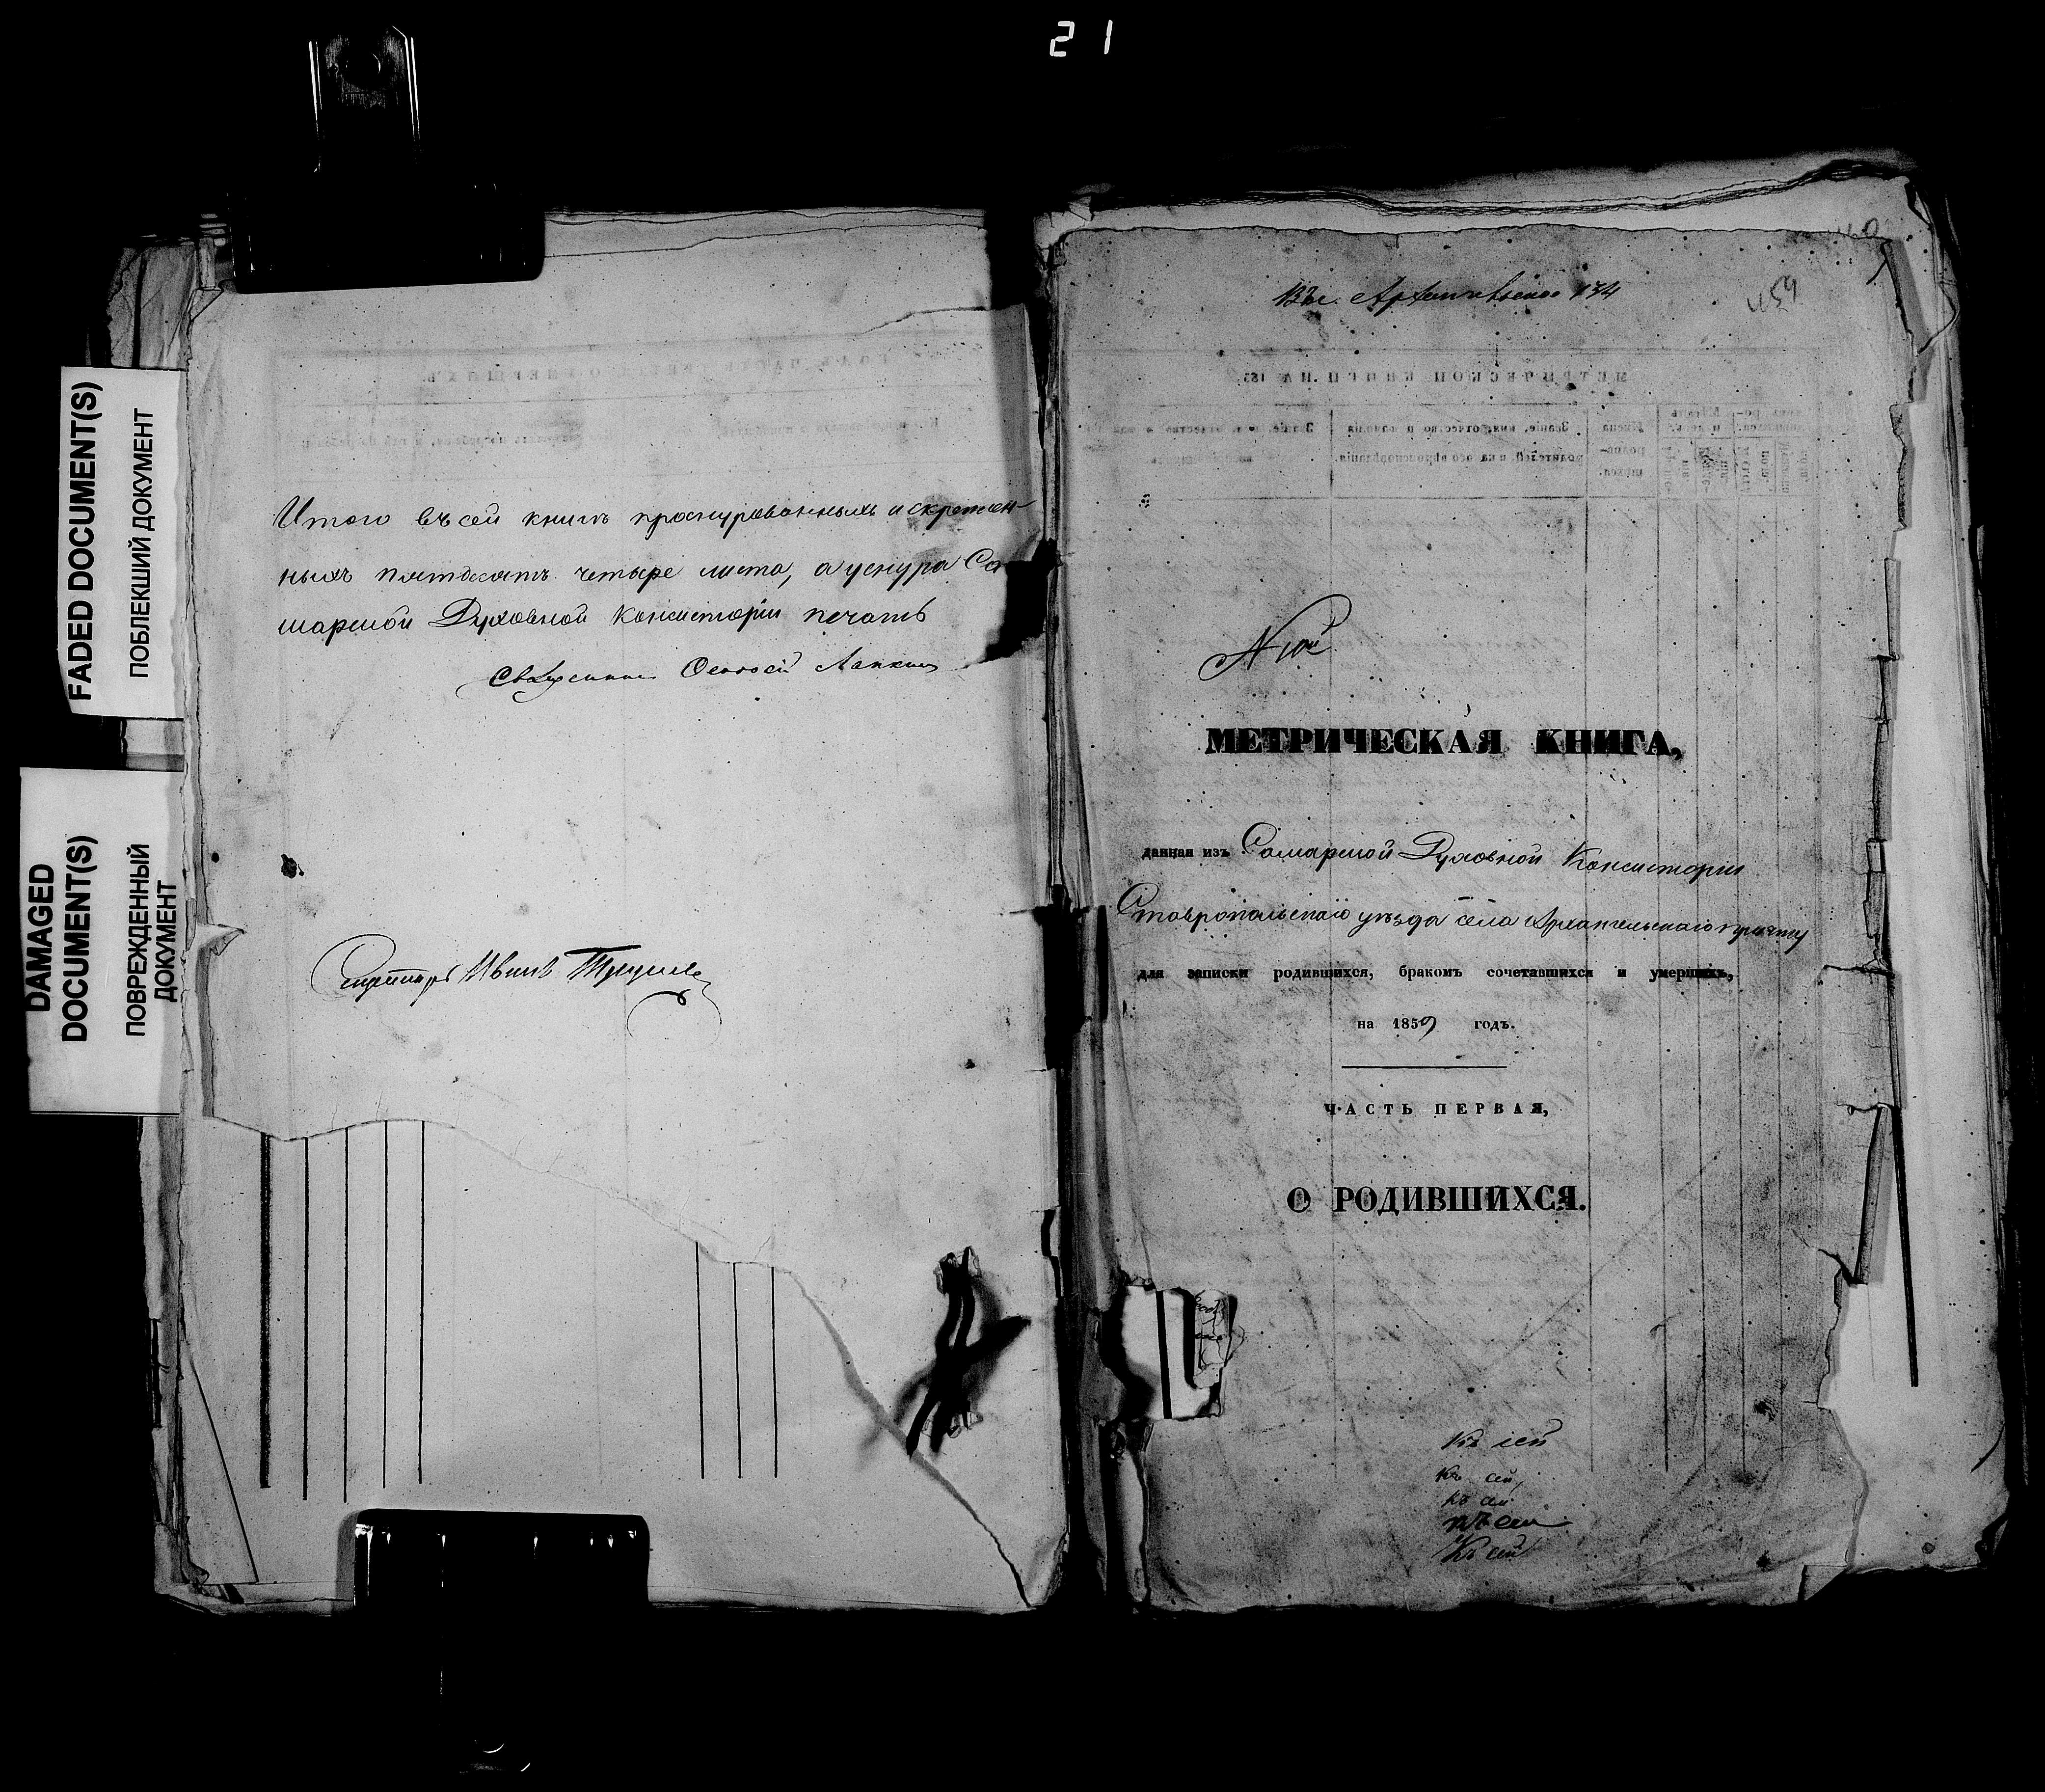 21
FADED DOCUMENT(S)
ПОБЛЕКШИЙ ДОКУМЕНТ
DAMAGED
DOCUMENT(S)
ПОВРЕЖДЕННЫЙ
ДОКУМЕНТ
Итого въ сей книгѣ прошнурованныхъ и скрѣплен-
ныхъ пятьдесятъ четыре листа, а у снура Са
марской Духовной Консисторіи печать
Священникъ
Секретарь Иванъ
134
459
МЕТРИЧЕСКАЯ КНИГА,
данная изъ Самарской Духовной Консисторіи
Ставропольскаго уѣзда села Архангельскаго причту
для записки родившихся, бракомъ сочетавшихся и умершихъ,
на 1859 годъ.
ЧАСТЬ ПЕРВАЯ,
О РОДИВШИХСЯ.
Къ сей
Къ сей
къ сей
къ сей
Къ сей